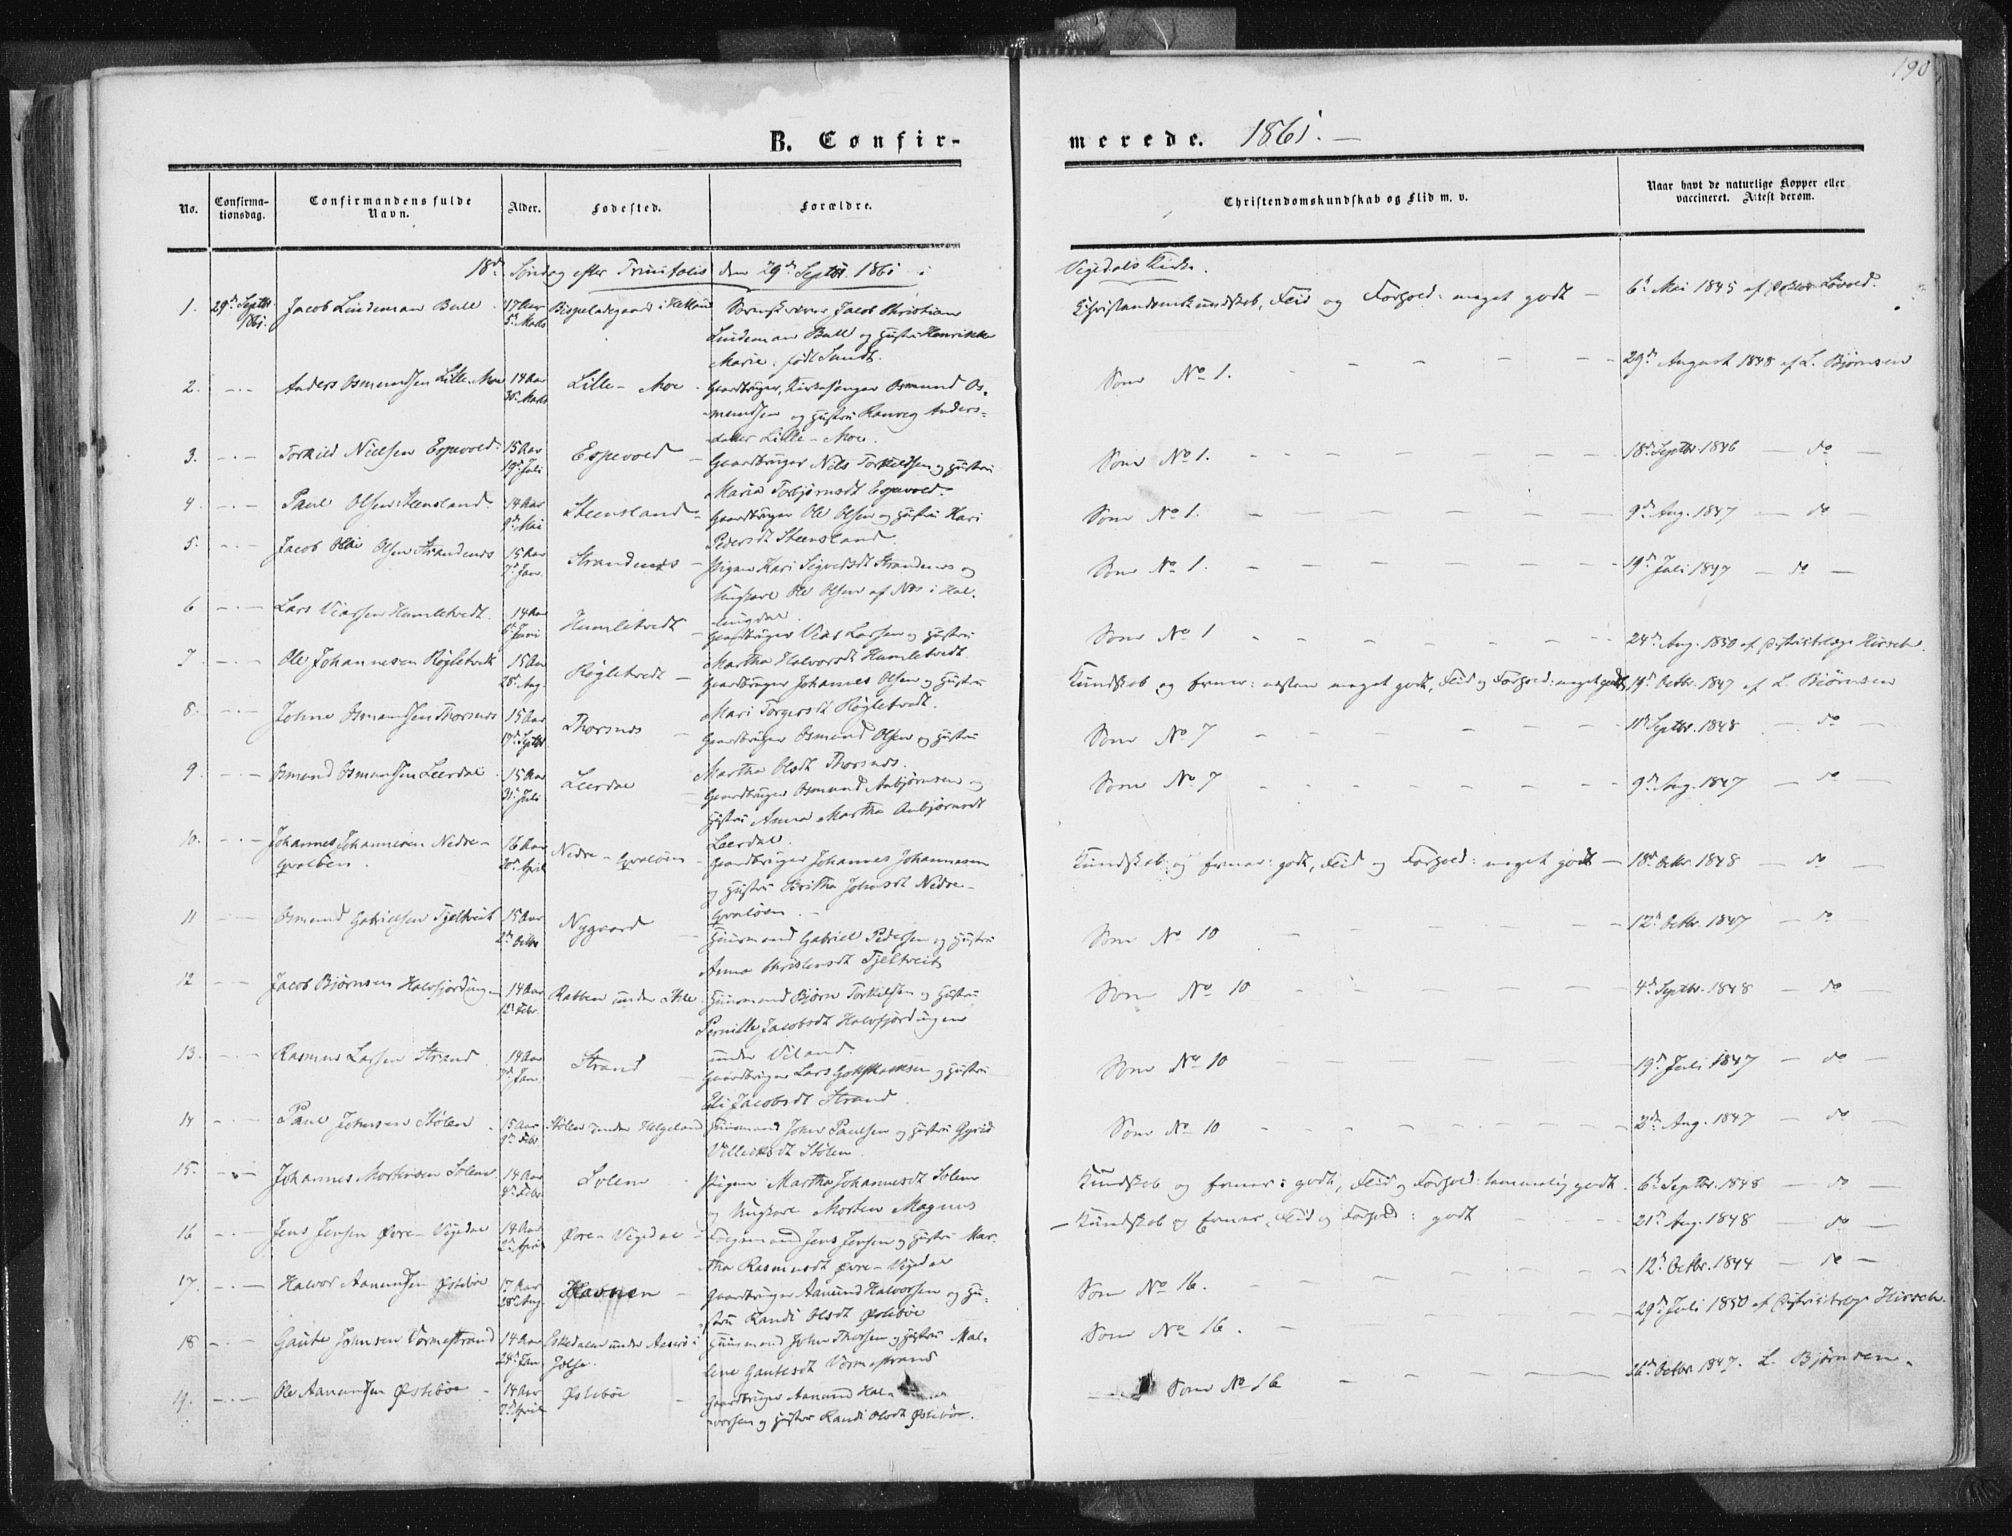 190
B. Confir-
merede. 1861. —
No.
Confirma-
tionsdag.
Confirmandens fulde
Navn.
Alder.
Fødested.
Forældre.
Christendomskundskab og Flid m. v.
Naar havt de naturlige Kopper eller
vaccineret. Attest derom.
18de Søndag efter Trinitatis den 29de Septbr. 1861 i
Vigedals Kirke.
1. 29de Septbr. 1861 Jacob Lindeman Bull 17 Aar Bispeladegaard i
Sorenskriver Jacob Christian
Lindeman Bull og Hustru Henrikke
Marie, født Sundt.
Christendomskundskab, Flid og Forhold: meget godt — 6te Mai 1845 af
2. Anders Osmundsen Lille-Moe 14 Aar Lille-Moe
Gaardbruger, Kirkesanger Osmund Os-
mundsen og Hustru Ranveg Anders-
datter Lille-Moe.
Som No 1. 29de August 1848 af L. Bjørnsen
3. Torkild Nielsen Espevold 15 Aar 19de Juli Espevold
Gaardbruger Nils Torkildsen og Hustru
Maria Torbjørnsdt Espevold.
Som No 1. 18de Septbr. 1846 — do —
4. Paul Olsen Steensland 14 Aar 9de Mai Steensland
Gaardbruger Ole Olsen og Hustru Kari
Pedersdt Steensland.
Som No 1. 9de Aug. 1847 — do —
5. Jacob Olai Olsen Strandenæs 15 Aar 7de Jan. Strandenæs
Pigen Kari Sigvedsdt Strandenæs og
Ungkarl Ole Olsen af Næs i Hal-
lingdal.
Som No 1. 19de Juli 1847 — do —
6 Lars Viersen Humletvedt 14 Aar 6te Juni Humletvedt
Gaardbruger Larsen og Hustru
Martha Halvorsdt Humletvedt
Som No 1 24de Aug. 1850 af Distriktslæge Hirsch.
7. Ole Johannesen Røgletvedt 15 Aar 28de Aug. Røgletvedt
Gaardbruger Johannes Olsen og Hustru
Mari Torgersdt Røgletvedt.
Kundskab og Evner: næsten meget godt, Flid og Forhold: meget godt 19de Octbr. 1847 af L. Bjørnsen
8. Johne Osmundsen Thorsnæs 15 Aar Septbr Thorsnæs
Gaardbruger Osmund Olsen og Hustru
Martha Olsdt Thorsnæs.
Som No 7 11te Septbr. 1848 — do —
9. Osmund Osmundsen Leerdal 15 Aar 31te Juli Leerdal
Gaardbruger Osmund Anbjørnsen og
Hustru Anna Martha Anbjørnsdt
Leerdal.
Som No 7 9de Aug. 1847 — do —
10. Johannes Johannesen Nedre-
Qvaløen. 16 Aar 20de April Nedre-Qvaløen
Gaardbruger Johannes Johannesen
og Hustru Britha Johnsdt Nedre-
Qvaløen.
Kundskab og Evner: godt, Flid og Forhold: meget godt — 18de Octbr. 1848 — do —
11 Osmund Gabrielsen Tjeltveit 15 Aar 2den Octbr Nygaard
Huusmand Gabriel Pedersen og Hustru
Anna Christensdt Tjeltveit
Som No 10 12te Octbr. 1847 — do —
12 Jacob Bjørnsen Halvfjordingen 14 Aar 12te Febr. Rabben under
Huusmand Bjørn Torkildsen og Hustru
Pernille Jacobsdt Halvfjordingen
under Viland.
Som No 10 4de Septbr. 1848 — do —
13. Rasmus Larsen Strand 14 Aar 7de Jan. Strand
Gaardbruger Lars Gotskalksen og Hustru
Eli Jacobsdt Strand.
Som No 10 19de Juli 1847 — do —
14 Paul Johnsen Stølen 15 Aar Febr Stølen under Helgeland
Huusmand John Paulsen og Hustru Gyrid
Villecksdt Stølen.
Som No 10 2den Aug. 1847 — do
15. Johannes Mortensen Solem 14 Aar 4de Febr Solem
Pigen Martha Johannesdt Solem
og Ungkarl Morten Magnus
Kundskab og Evner: godt, Flid og Forhold: temmelig godt. 6te Septbr. 1848 — do —
16 Jens Jensen Øvre-Vigedal 14 Aar April Øvre-Vigedal
Jens Jensen og Hustru Mar-
tha Rasmusdt Øvre-Vigedal
— Kundskab og Evner, Flid og Forhold: godt 21de Aug. 1848 — do —
17. Halvor Aanundsen Østebøe 17 Aar 28de Aug. Havnen
Gaardbruger Aanund Halvorsen og Hu-
stru Randi Olsdt Østebøe
Som No 16. 12te Octbr. 1844 — do —
18 Gaute Johnsen Vormestrand 14 Aar 24de Jan. under i
Jølse.
Huusmand John Thorsen og Hustru Mal-
lene Gautesdt Vormestrand
Som No 16. 29de Juli 1850 af Distriktslæge Hirsch.
19. Ole Aanundsen Østebøe 14 Aar April Østebøe
Gaardbruger Aanund Hal-
vorsen og Hustru Randi Olsdt Østebøe.
Som No 16 26de Octbr 1847. L. Bjørnsen.